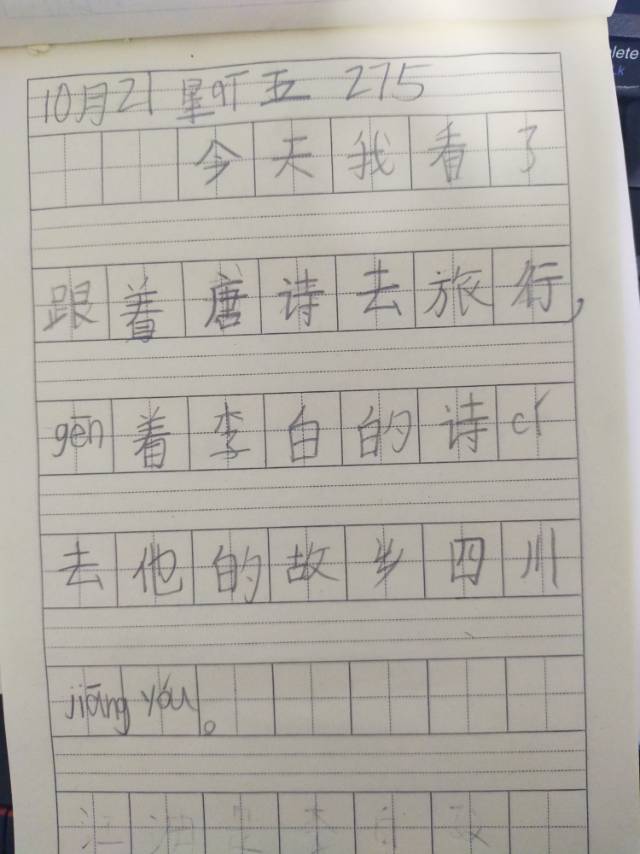 10月21 星期五 275
今天我看了
跟着唐诗去旅行,
gēn着李白的诗cí
去他的故乡四川
jiāng yóu。
江油是李白故